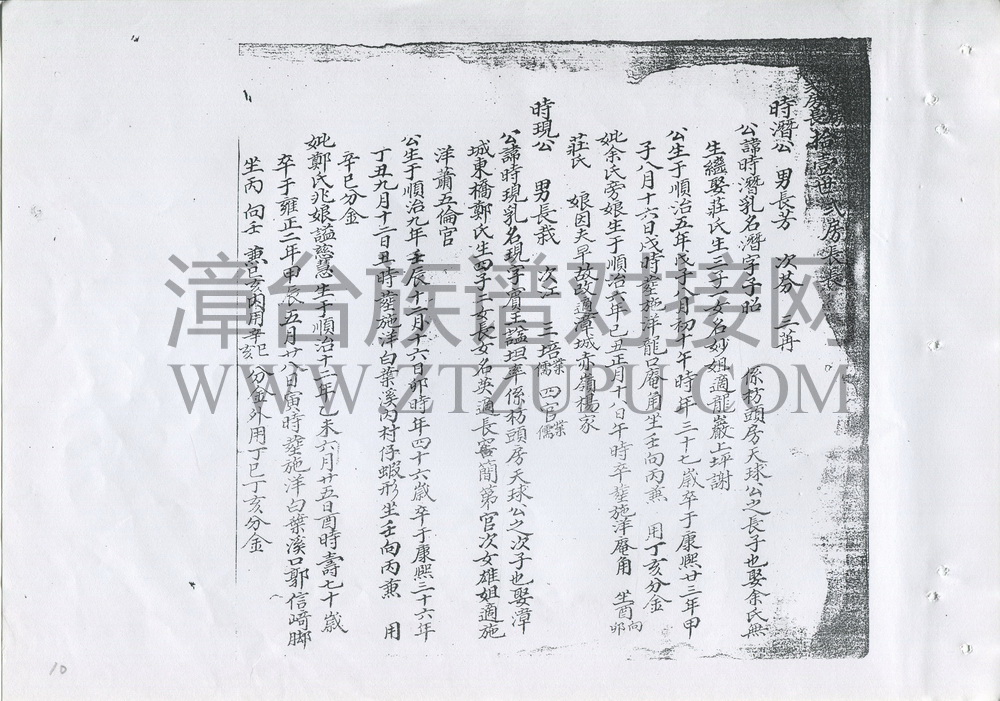 拾壹世弍房長
時潛公 男長芳 次芬 三苒
公諱時潛乳名潛字子昭 係枋頭房天球公之長子也娶余氏無
生繼娶莊氏生三子一女名妙姐適龍巖上坪謝
公生于順治五年戊子八月初十午時年三十七歲卒于康熙廿三年甲
子八月十六日戌時塟施洋龍口庵角坐壬向丙兼 用丁亥分金
妣余氏旁娘生于順治六年己丑正月十八日午時卒塟施洋庵角 坐酉向卯
莊氏 娘因夫早故改適漳城赤嶺楊家
時現公 男長栽 次 三培業儒 四官業儒
公諱時現乳名現字賓王謚坦率係枋頭房天球公之次子也娶漳
城東橋鄭氏生四子二女長女名英適長窖簡第官次女雄姐適施
洋蕭五倫官
公生于順治九年壬辰十二月十六日卯時年四十六歲卒于康熙三十六年
丁丑九月十二日丑時塟施洋白葉溪內村仔蝦形坐壬向丙兼 用
辛巳分金
妣鄭氏兆娘謚慈慧生于順治十二年乙未六月廿五日酉時壽七十歲
卒于雍正二年甲辰五月廿八日寅時塟施洋白葉溪口郭信崎脚
坐丙向壬 兼巳亥內用辛巳辛亥分金外用丁巳丁亥分金
漳台族谱对接网
WWW.ZTZUPU.COM
10